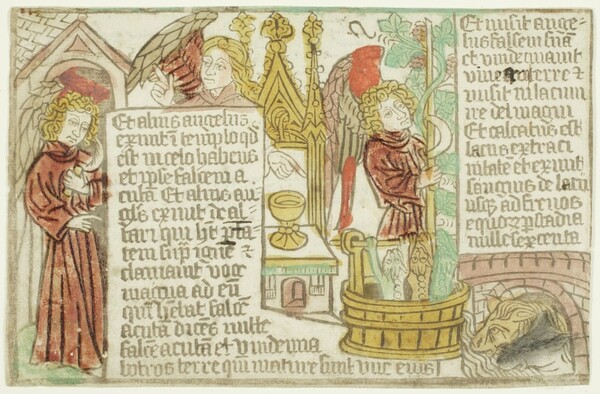 Et alius angelus
exivit d templo qd
est in celo habens
et ipse falcem a
cutā Et alius an
gls exivit de al
tari qui ht ptā
tem sup ignē et
clamavit voce
magna ad eū
qui hēbat falcē
acutā dicēs mitte
falcē acutā et vindemia
botros terre qui mature sunt vue eius
Et misit ange
lus falcem suā
et vindemiavit
vineā terre et
misit in lacum
ire dei magni
Et calcatus est
lacus extra ci
vitatē et exivit
sanguis de lacu
usqz ad frenos
equoz p stadia
mille sexcenta